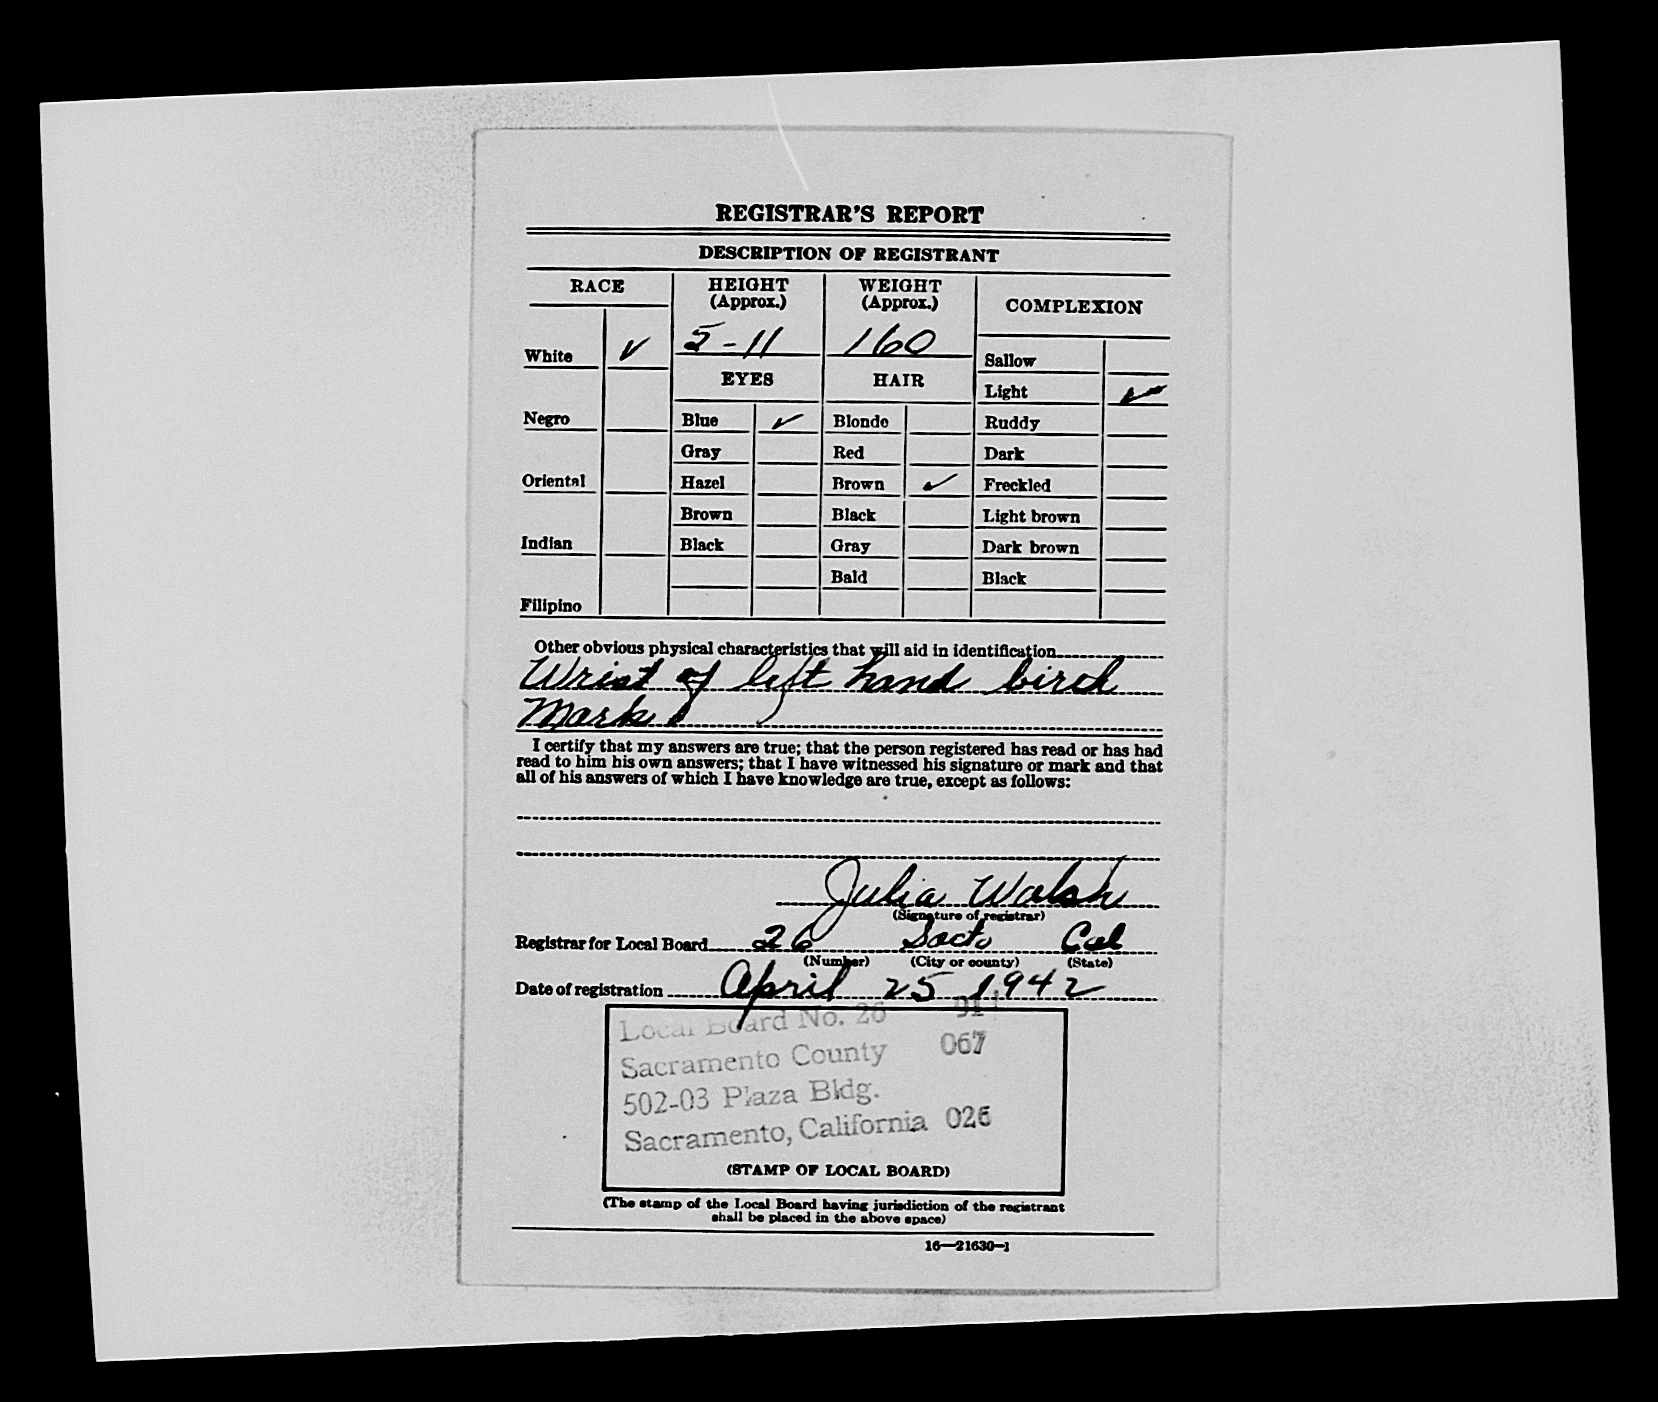 REGISTRAR'S REPORT
DESCRIPTION OF REGISTRANT
RACE HEIGHT (Approx.) WEIGHT (Approx.) COMPLEXION
White ✓ 5-11 160 Sallow
EYES HAIR Light ✓
Negro Blue ✓ Blonde Ruddy
Gray Red Dark
Oriental Hazel Brown ✓ Freckled
Brown Black Light brown
Indian Black Gray Dark brown
Bald Black
Filipino
Other obvious physical characteristics that will aid in identification
Wrist of left hand birth
Mark
I certify that my answers are true; that the person registered has read or has had
read to him his own answers; that I have witnessed his signature or mark and that
all of his answers of which I have knowledge are true, except as follows:
Julia Walsh
(Signature of registrar)
Registrar for Local Board 26 Sacto Cal
(Number) (City or county) (State)
Date of registration April 25 1942
Local Board No. 26
Sacramento County 067
502-03 Plaza Bldg.
Sacramento, California 026
(STAMP OF LOCAL BOARD)
(The stamp of the Local Board having jurisdiction of the registrant
shall be placed in the above space)
16—21630-1